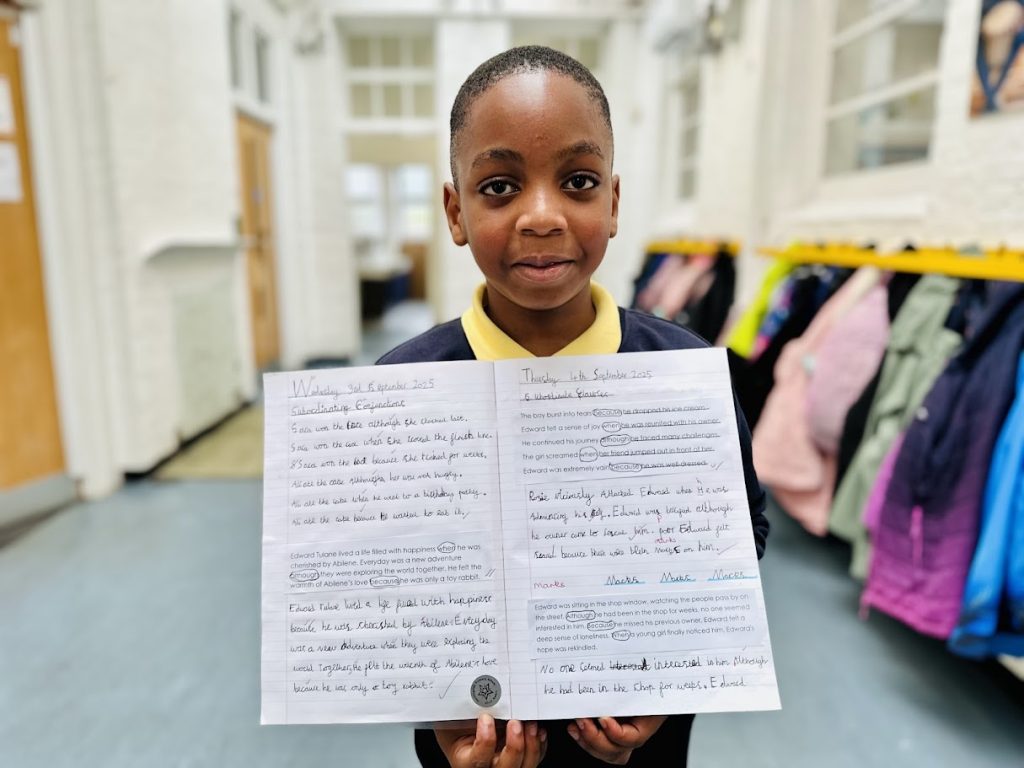 Wednesday 3rd September 2025
Subordinating Conjunctions
Sara won the race although she
Sara won the race when she crossed the finish line.
Sara won the because she trained for weeks.
Ali ate the cake although, her was not hungry.
Ali ate the cake when he went to a birthday party.
Ali ate the cake because he wanted to eat it.
Edward Tulane lived a life filled with happiness when he was
cherished by Abilene. Everyday was a new adventure
although they were exploring the world together. He felt the
warmth of Abilene's love because he was only a toy rabbit.
Edward Tulane lived a life filled with happiness
because he was cherished by Abilene. Everyday
was a new adventure while they were exploring the
world together, he felt the warmth of Abilene's love
because he was only a toy rabbit.
Thursday 4th September 2025
The boy burst into tears because he dropped his ice cream.
Edward felt a sense of joy when he was reunited with his owner.
He continued his journey although he faced many challenges.
The girl screamed when her friend jumped out in front of her.
Edward was extremely vain because he was well-dressed.
Rosie viciously Attacked Edward when He was
his Edward was although
he owner came to rescue him. poor Edward felt
because there was on him.
marks
marks Marks Marks Marks
Edward was sitting in the shop window, watching the people pass by on
the street. Although he had been in the shop for weeks, no one seemed
interested in him. Because he missed his previous owner, Edward felt a
deep sense of loneliness. When a young girl finally noticed him, Edward's
hope was rekindled.
No one interested in him Although
he had been in the shop for Edward